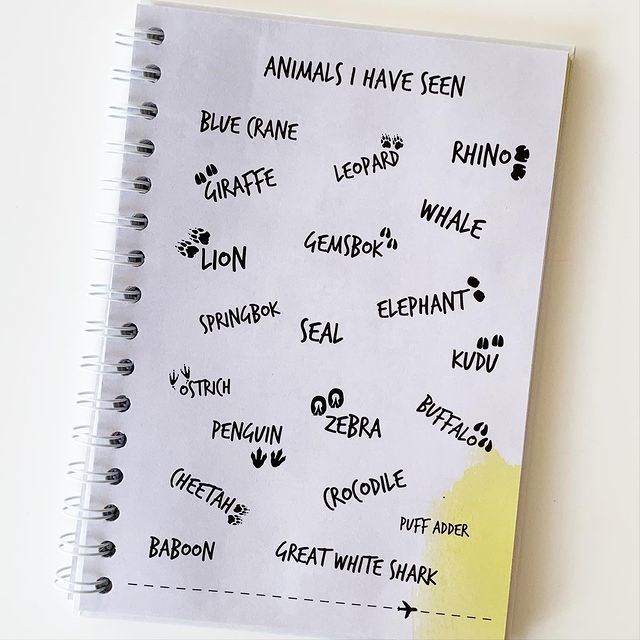 ANIMALS I HAVE SEEN
BLUE CRANE
LEOPARD
RHINO
GIRAFFE
WHALE
GEMSBOK
LION
ELEPHANT
SPRINGBOK
SEAL
KUDU
OSTRICH
ZEBRA
BUFFALO
PENGUIN
CHEETAH
CROCODILE
PUFF ADDER
BABOON
GREAT WHITE SHARK